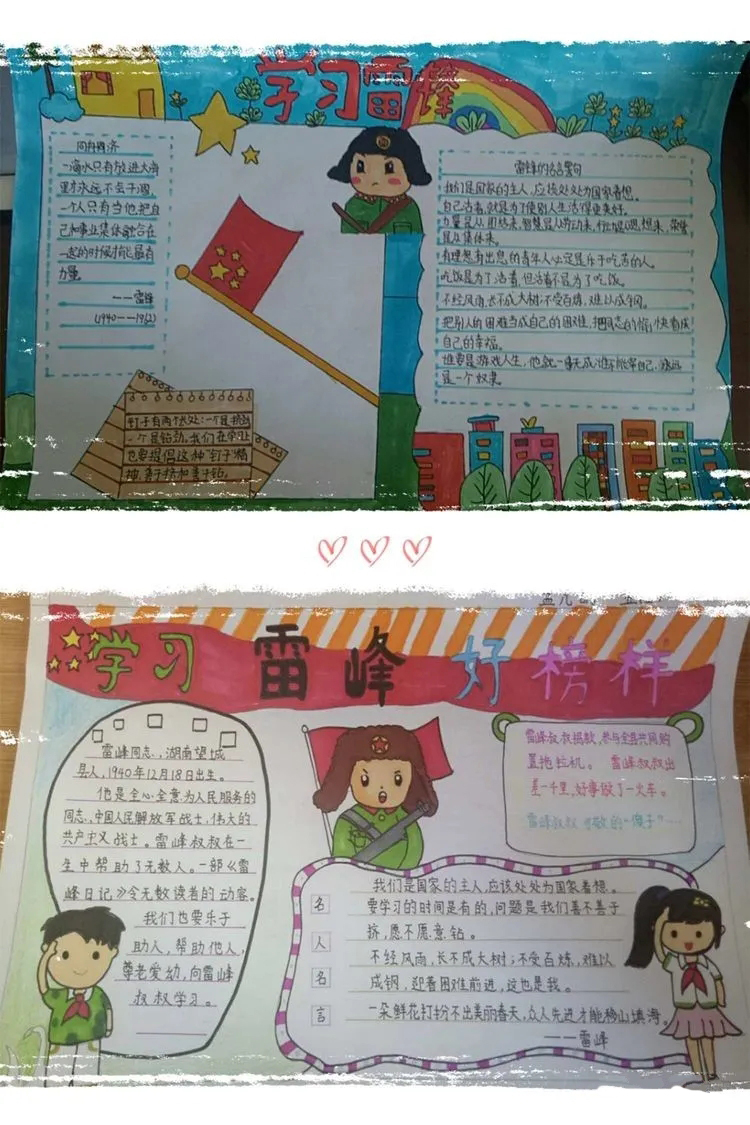 学习雷锋
同舟共济
一滴水只有放进大海
里才永远不会干涸,
一个人只有当他把自
己和事业集体融合在
一起的时候才能最有
力量
——雷锋
(1940——1962)
钉子有两个长处:一个是挤劲
一个是钻劲。我们在学习上
也要提倡这种"钉子"精
神,善于挤和善于钻。
雷锋的名言警句
我们是国家的主人,应该处处为国家着想。
自己活着,就是为了使别人生活得更美好。
力量是从团结来,智慧是从劳动来,行动是从思想来,荣誉
是从集体来。
有理想有出息的青年人必定是乐于吃苦的人。
吃饭是为了活着,但活着不是为了吃饭。
不经风雨,长不成大树;不受百炼,难以成钢。
把别人的困难当成自己的困难,把同志的愉快看成
自己的幸福。
谁要是游戏人生,他就一事无成;谁不能主宰自己,永远
是一个奴隶
学习雷峰好榜样
雷峰同志,湖南望城
县人,1940年12月18日出生。
他是全心全意为人民服务的
同志,中国人民解放军战士,伟大的
共产主义战士。雷峰叔叔在一
生中帮助了无数人。一部《雷
峰日记》令无数读者的动容。
我们也要乐于
助人,帮助他人,
尊老爱幼,向雷峰
叔叔学习。
雷峰叔叔捐款,参与全县共同购
置拖拉机。 雷峰叔叔出
差一千里,好事做了一火车。
雷峰叔叔 可敬的"傻子"……
名人名言
我们是国家的主人,应该处处为国家着想。
要学习的时间是有的,问题是我们善不善于
挤,愿不愿意钻。
不经风雨,长不成大树;不受百炼,难以
成钢,迎着困难前进,这也是我。
一朵鲜花打扮不出美丽春天,众人先进才能移山填海。
——雷峰